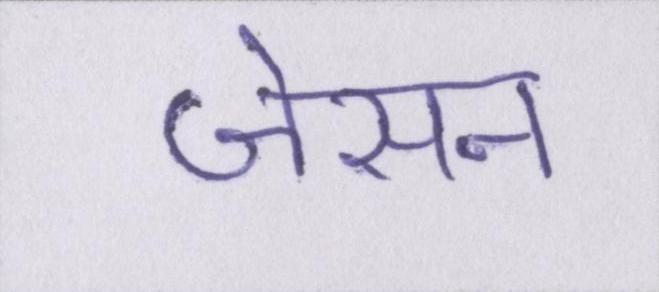 जेसन